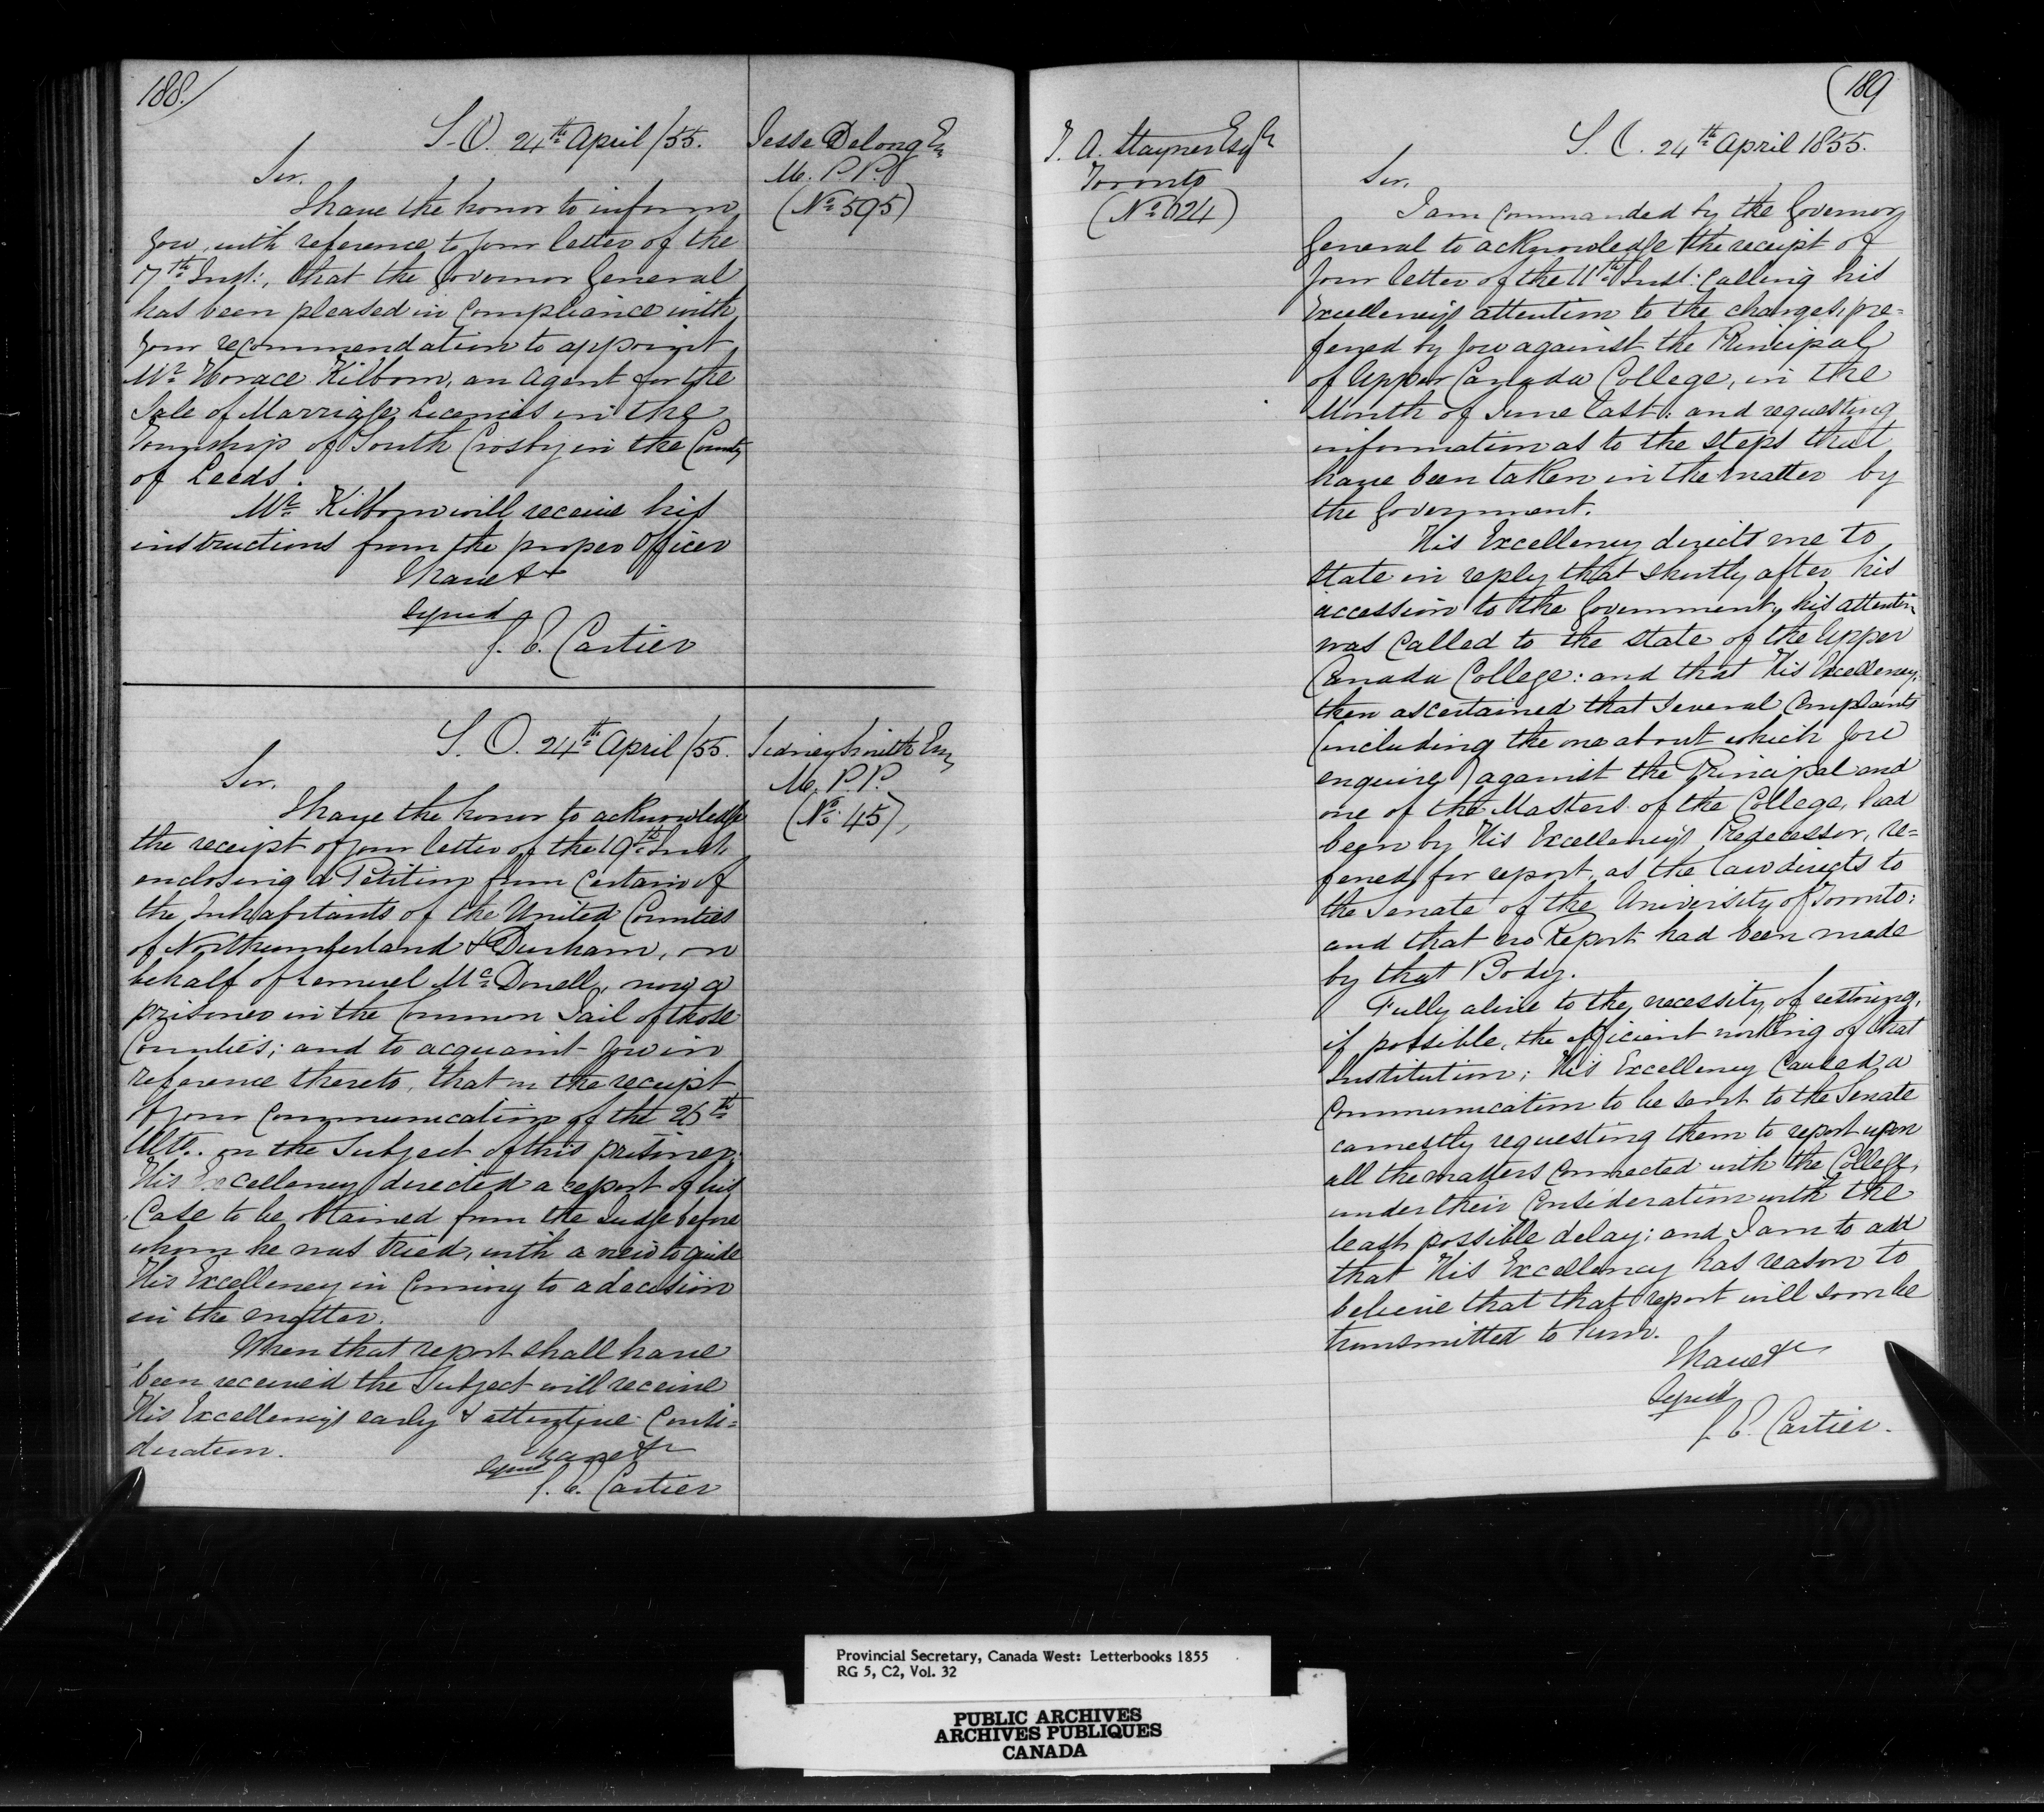 188.
S. O. 24th April /55.
Jesse Delong Esq
M. P. P.
(No 595)
Sir,
I have the honor to inform
you, with reference to your letter of the
17th Inst:, that the Governor General
has been pleased in Compliance with
your recommendation to appoint
Mr Horace Kilborn, an Agent for the
Sale of Marriage Licenses in the
Township of South Crosby in the County
of Leeds.
Mr Kilborn will receive his
instructions from the proper Officer
I have &c
Signed
G. E. Cartier
S. O. 24th April /55.
Sidney Smith Esq
M. P. P.
(No 45)
Sir,
I have the honor to acknowledge
the receipt of your letter of the 19th Inst.
enclosing a Petition from Certain of
the Inhabitants of the United Counties
of Northumberland & Durham, on
behalf of Lemuel McDonell, now a
prisoner in the Common Jail of those
Counties; and to acquaint you in
reference thereto, that on the receipt
of your Communication of the 26th
Ulto. on the Subject of this prisoner,
His Excellency directed a report of his
Case to be obtained from the Judge before
whom he was tried, with a view to guide
His Excellency in Coming to a decision
in the matter.
When that report shall have
been received the Subject will receive
His Excellency's early & attentive Consi=
deration.
I have &c
Signed
G. E. Cartier
189
T. A. Stayner Esqr
Toronto
(No 624)
S. O. 24th April 1855.
Sir,
I am Commanded by the Governor
General to acknowledge the receipt of
your letter of the 11th Inst: Calling his
Excellency's attention to the charges, pre=
ferred by you against the Principal
of Upper Canada College, in the
Month of June last: and requesting
information as to the steps that
have been taken in the matter by
the Government.
His Excellency directs me to
state in reply that shortly after his
accession to the Government, his attention
was Called to the state of the Upper
Canada College: and that His Excellency,
then ascertained that Several Complaints
(including the one about which you
enquire) against the Principal and
one of the Masters of the College, had
been by His Excellency's Predecessor, re=
ferred for report, as the law directs to
the Senate of the University of Toronto:
and that no Report had been made
by that Body.
Fully alive to the necessity, of restoring,
if possible, the efficient working of that
Institution; His Excellency Caused a
Communication to be sent to the Senate
earnestly requesting them to report upon
all the matters Connected with the College,
under their Consideration with the
least possible delay; and I am to add
that His Excellency has reason to
believe that that report will soon be
transmitted to him.
I have &c
Signed
G. E. Cartier.
Provincial Secretary, Canada West: Letterbooks 1855
RG 5, C2, Vol. 32
PUBLIC ARCHIVES
ARCHIVES PUBLIQUES
CANADA